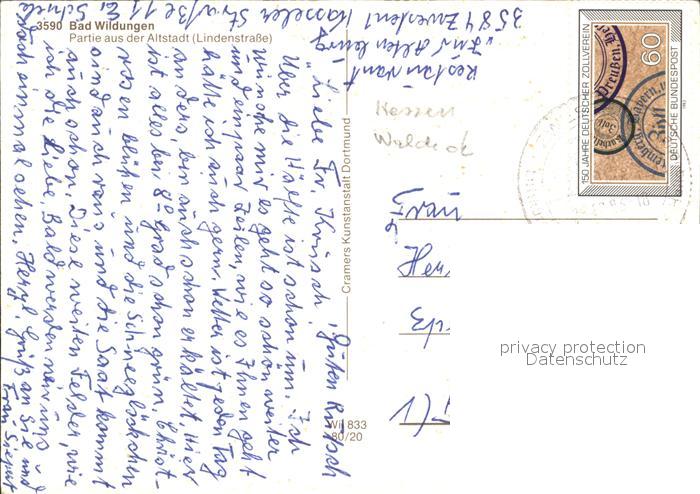 3590 Bad Wildungen
Partie aus der Altstadt (Lindenstraße)
Restaurant
"Zur Altenburg"
3584 Zwesten 1 Kasseler Straße 11
Liebe Fr.
Guten Rutsch
Über die Hälfte ist schon um. Ich
wünsche mir es geht so schön weiter
und ein paar Zeilen, wie es Ihnen geht
hätte ich auch gern. Wetter ist jeden Tag
anders, bin auch schon erkältet. Hier
ist alles bei 8° Grad schon grün. Christ-
rosen blühen und die Schneeglöckchen
sind auch raus und die Saat kommt
auch schon. Diese weiten Felder, wie
ich die liebe. Bald werden wir uns
noch einmal sehen. Herzl. Grüße an Sie und
Frau
Cramers Kunstanstalt Dortmund
Wil 833
80/20
Hessen
Waldeck
150 JAHRE DEUTSCHER ZOLLVEREIN
60
DEUTSCHE BUNDESPOST
Preußen
Bayern
Zoll
Her
privacy protection
Datenschutz